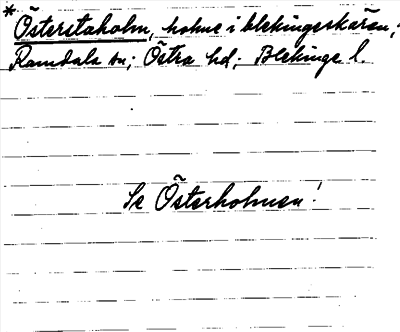 * Österstaholm, holme i blekingeskären,
Ramdala sn; Östra hd; Blekinge l.
Se Österholmen!